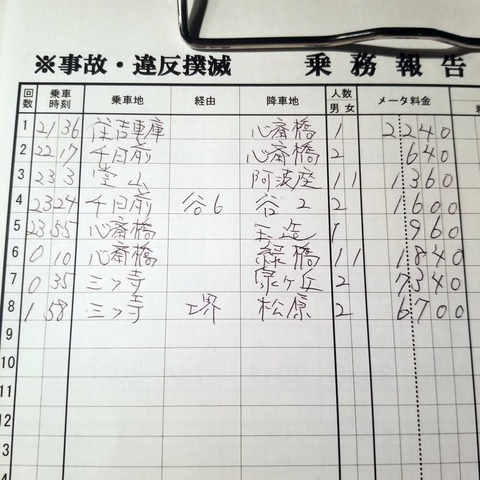 ※事故・違反撲滅 乗務報告
回数 乗車時刻 乗車地 経由 降車地 人数 男女 メータ料金
1 21 36 住吉車庫 心斎橋 1 2240
2 22 17 千日前 心斎橋 2 640
3 23 3 堂山 阿波座 1 1 1360
4 23 24 千日前 谷6 谷2 2 1600
5 23 55 心斎橋 玉造 1 960
6 0 10 心斎橋 緑橋 1 1 1840
7 0 35 三ツ寺 泉ヶ丘 2 7340
8 1 58 三ツ寺 堺 松原 2 6700
9
10
11
12
3
4